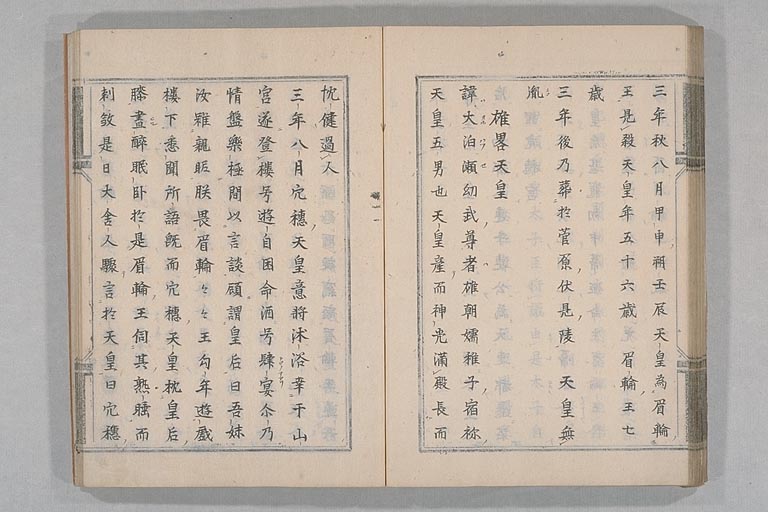 三年秋八月甲申朔壬辰天皇為眉輪
王見殺天皇年五十六歳眉輪王七
歳
三年後乃葬於菅原伏見陵天皇無
胤
雄略天皇
諱大泊瀬幼武尊者雄朝嬬稚子宿祢
天皇五男也天皇産而神光満殿長而
忱健過人
三年八月穴穂天皇意将沐浴幸于山
宮遂登楼兮遊目因命酒兮肆宴尒乃
情盤楽極間以言談顧謂皇后曰吾妹
汝雖親眤朕畏眉輪々々王幼年遊戯
楼下悉聞所語既而穴穂天皇枕皇后
膝昼酔眠臥於是眉輪王伺其熟睡而
刺殺是日大舎人驟言於天皇曰穴穂